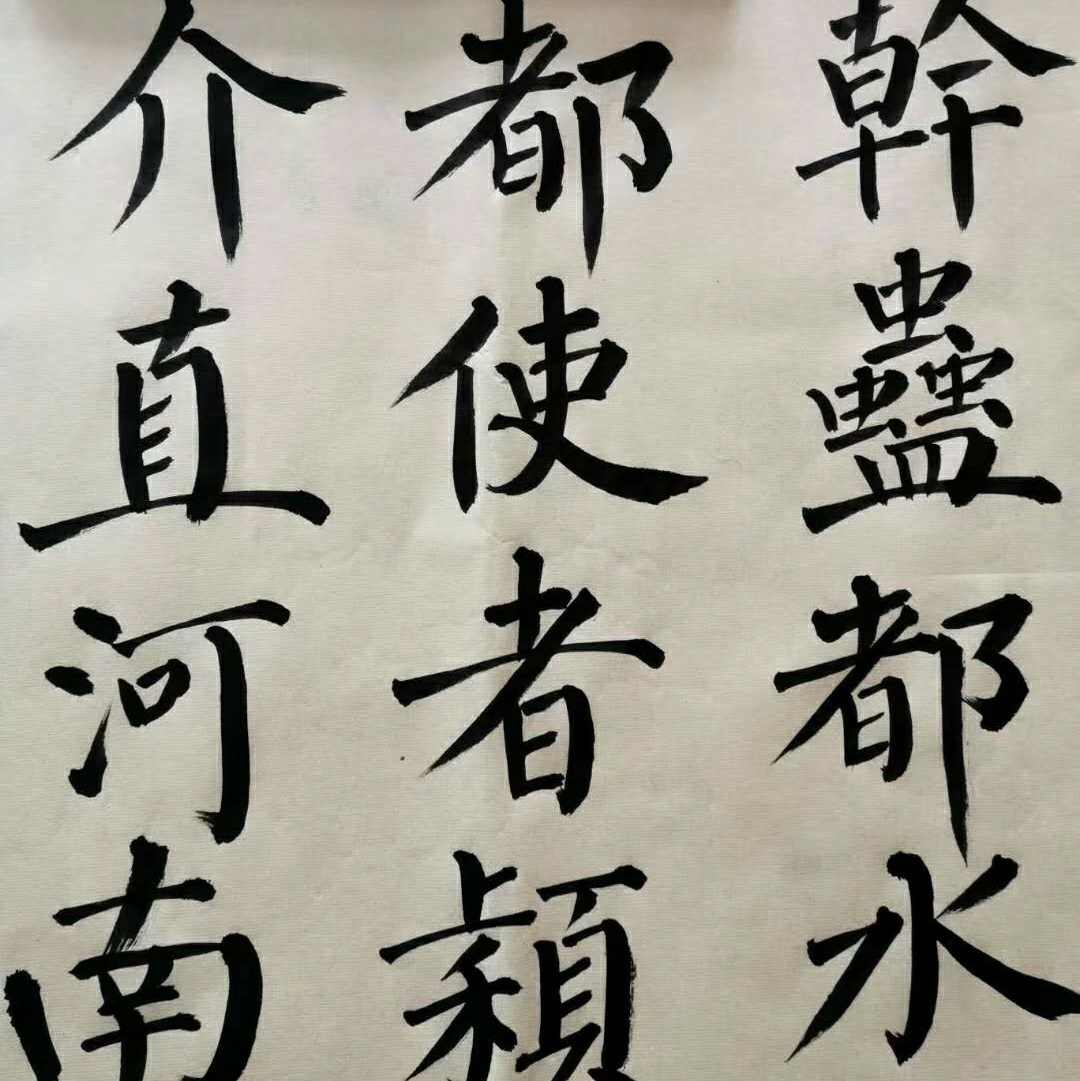 幹蠱都水
都使者潁
介直河南